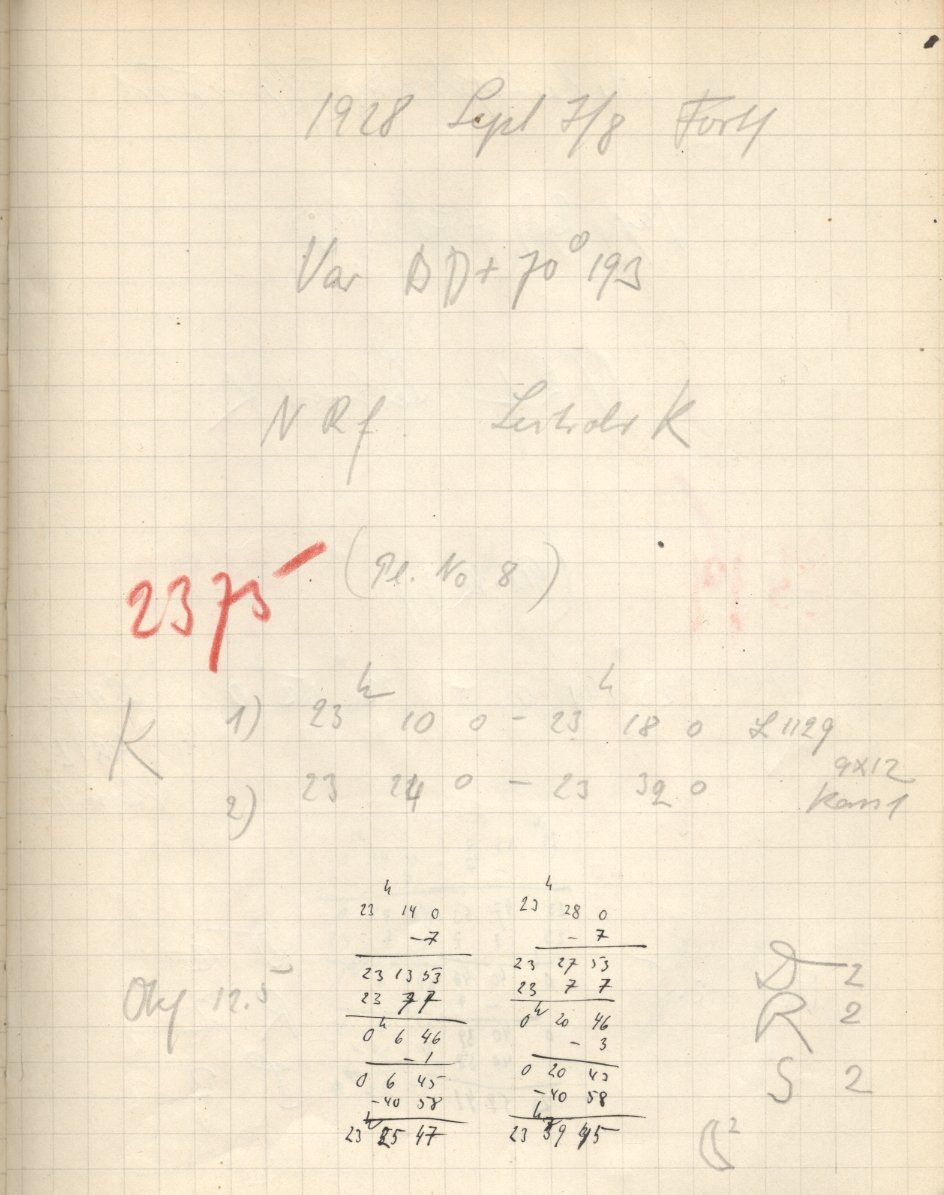 1928 Sept 7/8 Forts
Var BD + 70° 193
N Rf K
2375 (Pl. No 8)
K 1) 23ʰ 10 0 - 23ʰ 18 0 L 1129
2) 23 24 0 - 23 32 0 9x12
23ʰ 14 0 23ʰ 28 0
-7 - 7
23 13 53 23 27 53
23 7 7 23 7 7
Obj 12.5 0ʰ 6 46 0ʰ 20 46
- 1 - 3
0 6 45 0 20 43
-40 58 -40 58
23ʰ 25 47 23ʰ 39 45
D 2
R 2
S 2